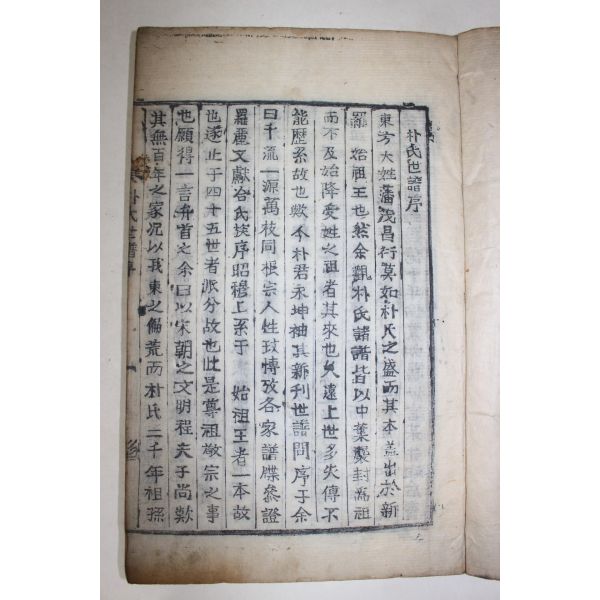 朴氏世譜序
東方大姓蕃茂昌衍莫如朴氏之盛而其本盖出於新
羅 始祖王也然余觀朴氏諸譜皆以中葉受封爲祖
而不及始降受姓之祖者其來也久遠上世多失傳不
能歷系故也歟今朴君永坤袖其新刊世譜問序于余
曰千流一源萬枝同根宗人性玟博攷各家譜牒叅證
羅麗文獻 氏 序昭穆上系于 始祖王者一本故
也遂止于四十五世者派分故也此是尊祖敬宗之事
也願得一言弁首之余曰以宋朝之文明程夫子尚歎
其無百年之家况以我東之偏荒而朴氏二千年祖孫
朴氏世譜序